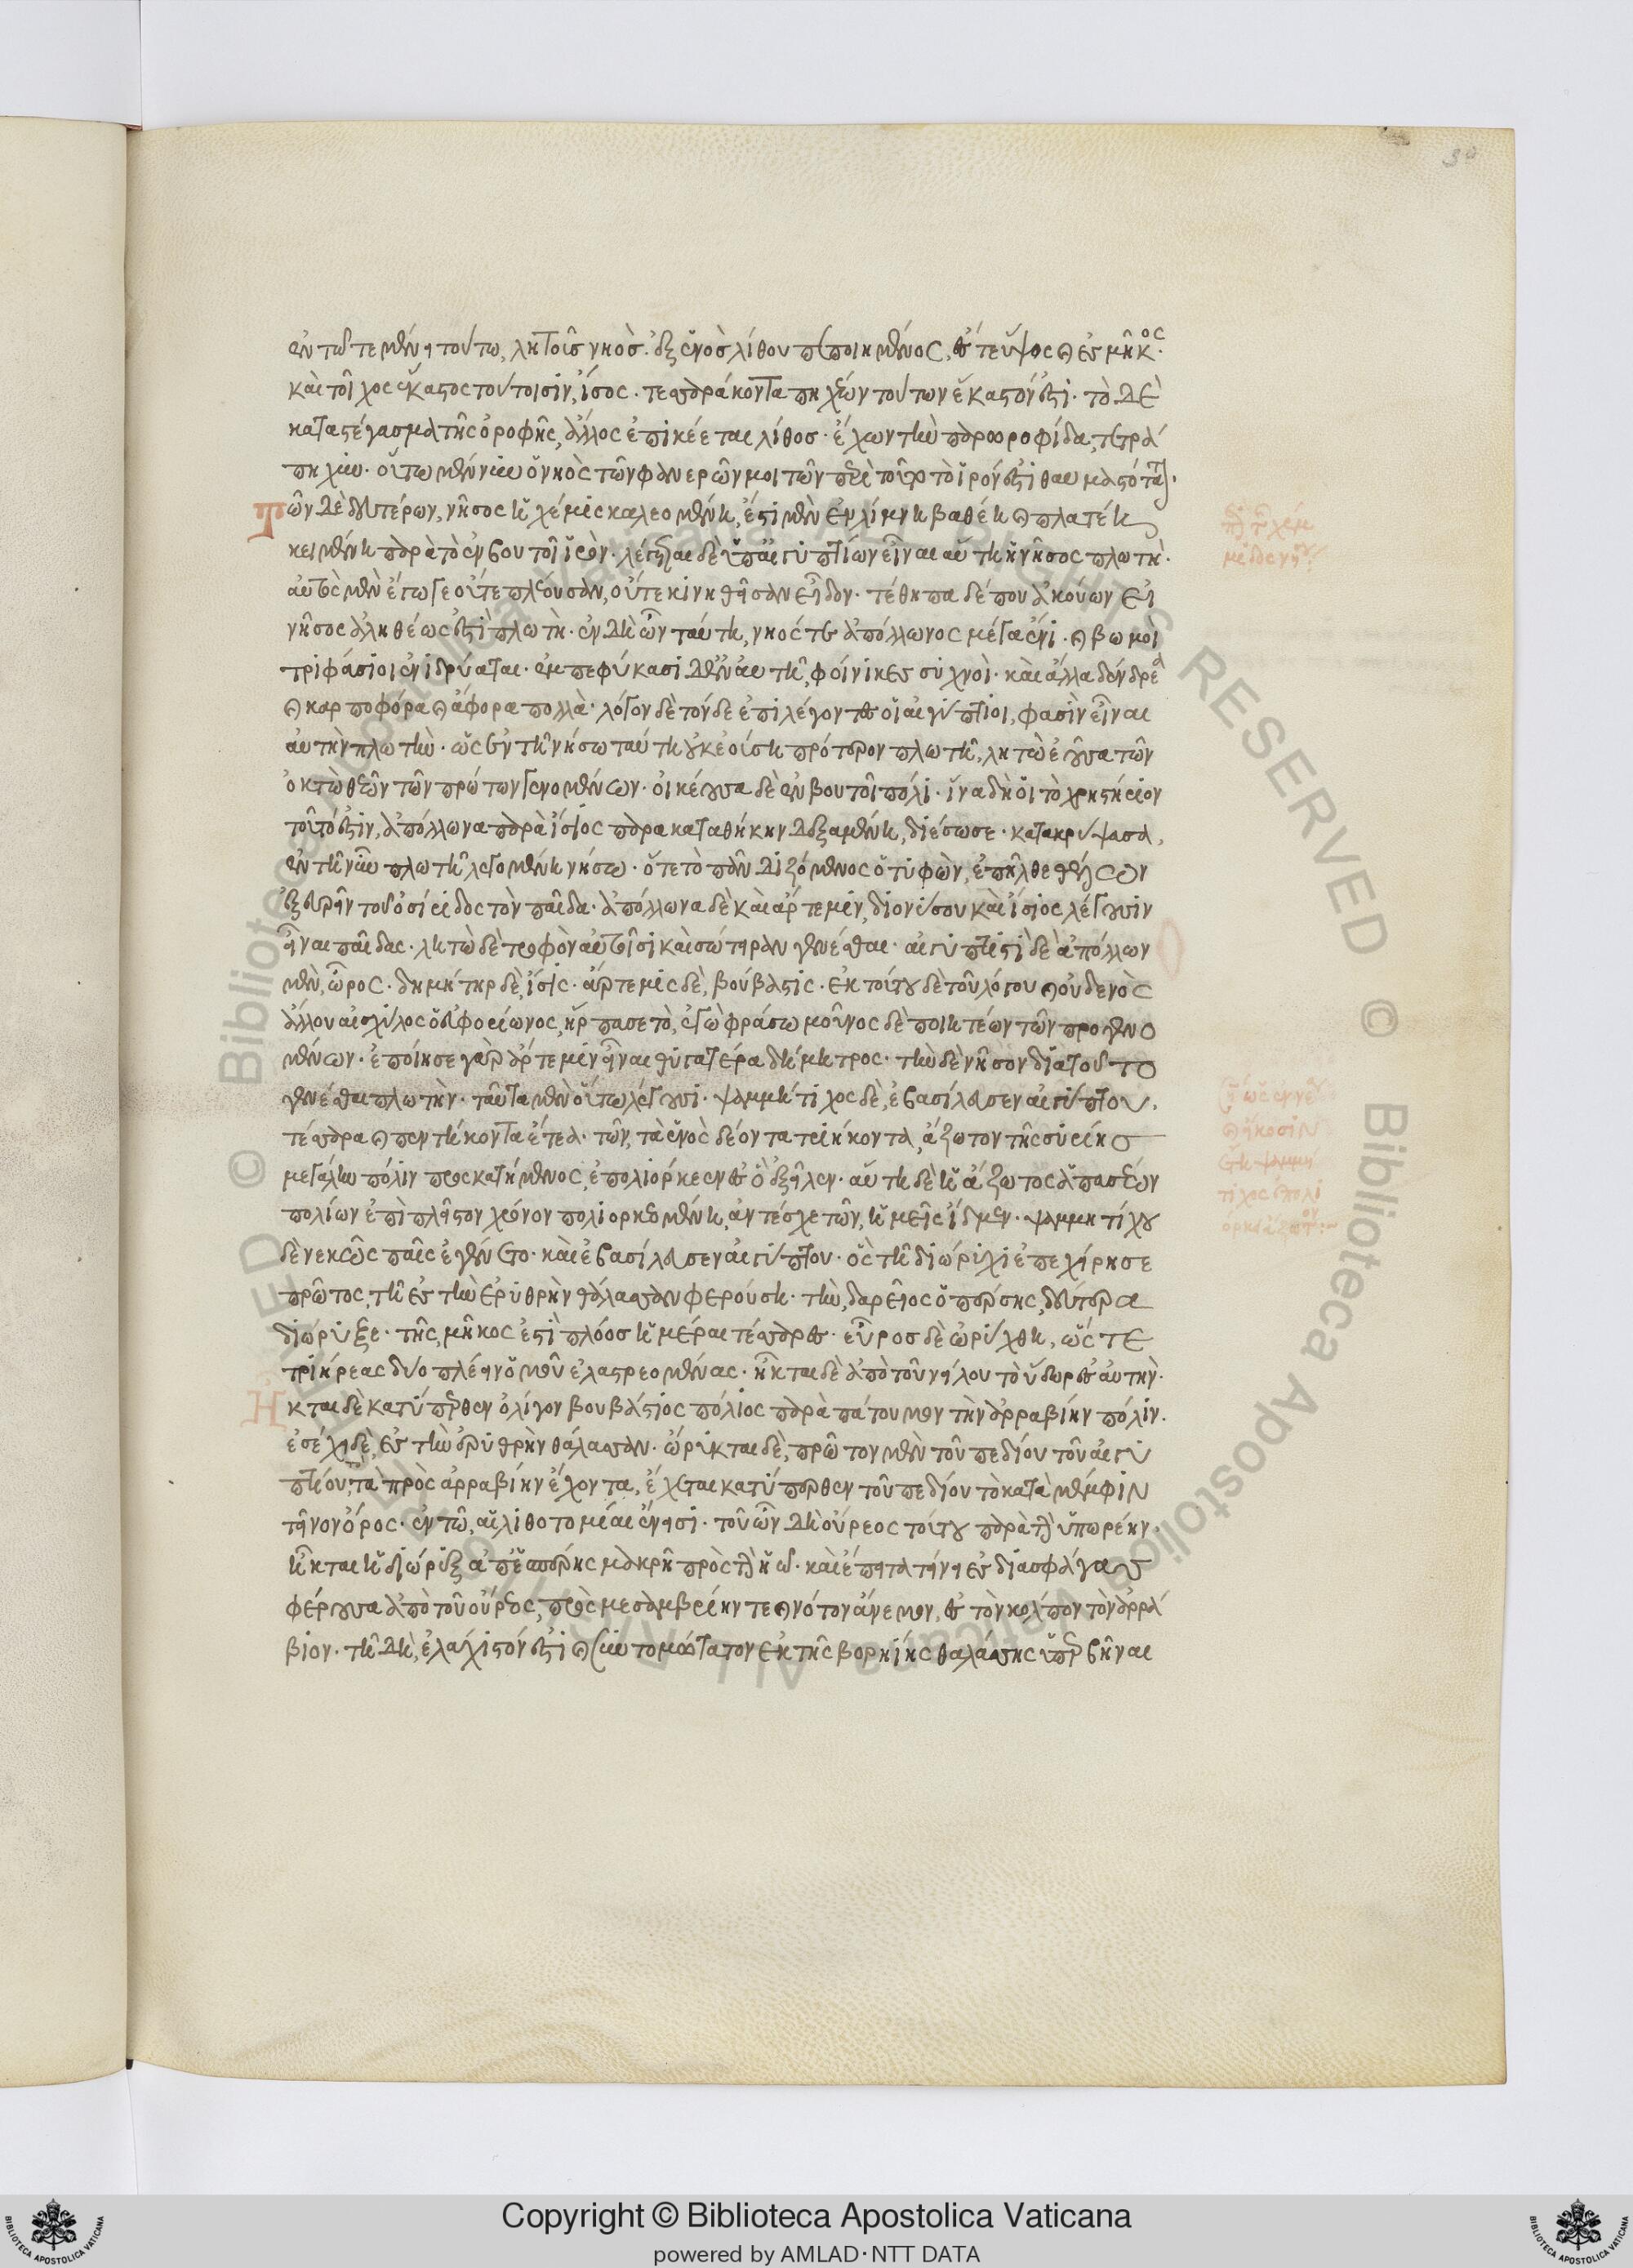 ἐν τῶ τεμένεϊ τούτω, λητοῦς νηὸσ. ἐξ ἑνὸσ λίθου πεποιημένος, ἔς τε ὕψος καὶ ἐς μῆκος.
καὶ τοῖχος ἕκαστος τούτοισιν, ἴσος. τεσσαράκοντα πηχέων τούτων ἕκαστόν ἐστι. τὸ δὲ
καταστέγασμα τῆς ὀροφῆς, ἄλλος ἐπικέεται λίθοσ. ἔχων τὴν παρωροφίδα, τετρα
πηχέω. οὕτω μέν νυν ὁ νηὸς τῶν φανερῶν μοι τῶν περὶ τοῦτο τὸ ἱρόν ἐστι θαυμαστότατον.
τῶν δὲ δευτέρων, νῆσος ἡ χέμις καλεομένη, ἔστι μὲν ἐν λίμνη βαθέη καὶ πλατέη
κειμένη παρὰ τὸ ἐν βουτοῖ ἱρόν. λέγεται δὲ ὑπ' αἰγυπτίων εἶναι αὕτη ἡ νῆσος πλωτὴ.
αὐτὸς μὲν ἔγωγε οὔτε πλέουσαν, οὔτε κινηθῆσαν εἶδον. τέθηπα δέ που ἀκούων εἰ
νῆσος ἀληθέως ἐστὶ πλωτὴ. ἐν δὴ ὦν ταύτη, νηός τε ἀπόλλωνος μέγας ἔνι. καὶ βωμοὶ
τριφάσιοι ἐνιδρύαται. ἐμπεφύκασι δ' ἐν αυτῆ, φοίνικες συχνοὶ. καὶ ἄλλα δένδρεα
καὶ καρποφόρα καὶ ἄφορα πολλὰ. λόγον δὲ τόνδε ἐπιλέγοντες οἱ αἰγύπτιοι, φασὶν εἶναι
αὐτὴν πλωτὴν. ὡς ἐν τῆ νήσω ταύτη οὐκ ἐούση πρότερον πλωτῆ, λητὼ ἐοῦσα τῶν
ὀκτὼ θεῶν τῶν πρώτων γενομένων. οἰκέουσα δὲ ἐν βουτοῖ πόλι. ἵνα δὴ οἱ τὸ χρηστήριον
τοῦτό ἐστιν, ἀπόλλωνα παρὰ ἴσιος παρακαταθήκην δεξαμένη, διέσωσε. κατακρύψασα,
ἐν τῆ νῦν πλωτῆ λεγομένη νήσω. ὅτε τὸ πᾶν διζόμενος ὁ τυφὼν, ἐπῆλθε θέλων
ἐξευρεῖν τοῦ ὀσίριδος τὸν παῖδα. ἀπόλλωνα δὲ καὶ ἄρτεμιν, διονύσου καὶ ἴσιος λέγουσιν
εἶναι παῖδας. λητὼ δὲ τροφὸν αὐτοῖσι καὶ σώτειραν γενέσθαι. αἰγυπτιστὶ δὲ ἀπόλλων
μὲν, ὦρος. δημήτηρ δὲ, ἴσις. ἄρτεμις δὲ, βούβαστις. ἐκ τούτου δὲ τοῦ λόγου καὶ οὐδενὸς
ἄλλου αἰσχύλος ὁ εὐφορίωνος, ἥρπασε τὸ, ἐγὼ φράσω μοῦνος δὲ ποιητέων τῶν προγενο
μένων. ἐποίησε γὰρ ἄρτεμιν εἶναι θυγατέρα δήμητρος. τὴν δὲ νῆσον διὰ τοῦτο
γενέσθαι πλωτὴν. ταῦτα μὲν οὕτω λέγουσι. ψαμμήτιχος δὲ, ἐβασίλευσεν αἰγύπτου.
τέσσερα καὶ πεντήκοντα ἔτεα. τῶν, τὰ ἑνὸς δέοντα τριήκοντα, ἄζωτον τῆς συρίης
μεγάλην πόλιν προσκατήμενος, ἐπολιόρκεεν ἐς ὃ ἐξεῖλεν. αὕτη δὲ ἡ ἄζωτος ἁπασέων
πολίων ἐπὶ πλεῖστον χρόνον πολιορκεομένη, ἀντέσχε τῶν, ἡμεῖς ἴδμεν. ψαμμητίχου
δὲ νεκὼς παῖς ἐγένετο. καὶ ἐβασίλευσεν αἰγύπτου. ὃς τῆ διώρυχι ἐπεχείρησε
πρῶτος, τῆ ἐς τὴν ἐρυθρὴν θάλασσαν φερούση. τὴν, δαρεῖος ὁ πέρσης, δεύτερα
διώρυξε. τῆς, μῆκος ἐστὶ πλόοσ ἡμέραι τέσσερες. εὖροσ δὲ ὠρύχθη, ὥς τε
τριήρεας δύο πλέειν ὁμοῦ ἐλαστρεομένας. ἦκται δὲ ἀπὸ τοῦ νείλου τὸ ὕδωρ ἐς αὐτὴν.
Ἦκται δὲ κατύπερθεν ὀλίγον βουβάστιος πόλιος παρὰ πάτουμον τὴν ἀρραβίην πόλιν.
ἐσέχει δὲ, ἐς τὴν ἐρυθρὴν θάλασσαν. ὠρύκται δὲ, πρῶτον μὲν τοῦ πεδίου τοῦ αἰγυ
πτίου, τὰ πρὸς ἀρραβίην ἔχοντα, ἔχεται κατύπερθεν τοῦ πεδίου τὸ κατὰ μέμφιν
τεῖνον ὄρος. ἐν τῶ, αἱ λιθοτομίαι ἔνεισι. τοῦ ὦν δὴ οὔρεος τούτου παρὰ τὴν ὑπωρέην.
ἦκται ἡ διώρυξ ἀπ' ἑσπέρης μακρὴ πρὸς τὴν ἠῶ. καὶ ἔπειτα τείνει ἐς διασφάγας
φέρουσα ἀπὸ τοῦ οὔρεος, πρὸς μεσαμβρίην τε καὶ νότον ἄνεμον, ἐς τὸν κόλπον τὸν ἀρρά
βιον. τῆ δὴ, ἐλάχιστόν ἐστι καὶ συντομώτατον ἐκ τῆς βορηίης θαλάσσης ὑπερβῆναι
Copyright © Biblioteca Apostolica Vaticana
powered by AMLAD·NTT DATA